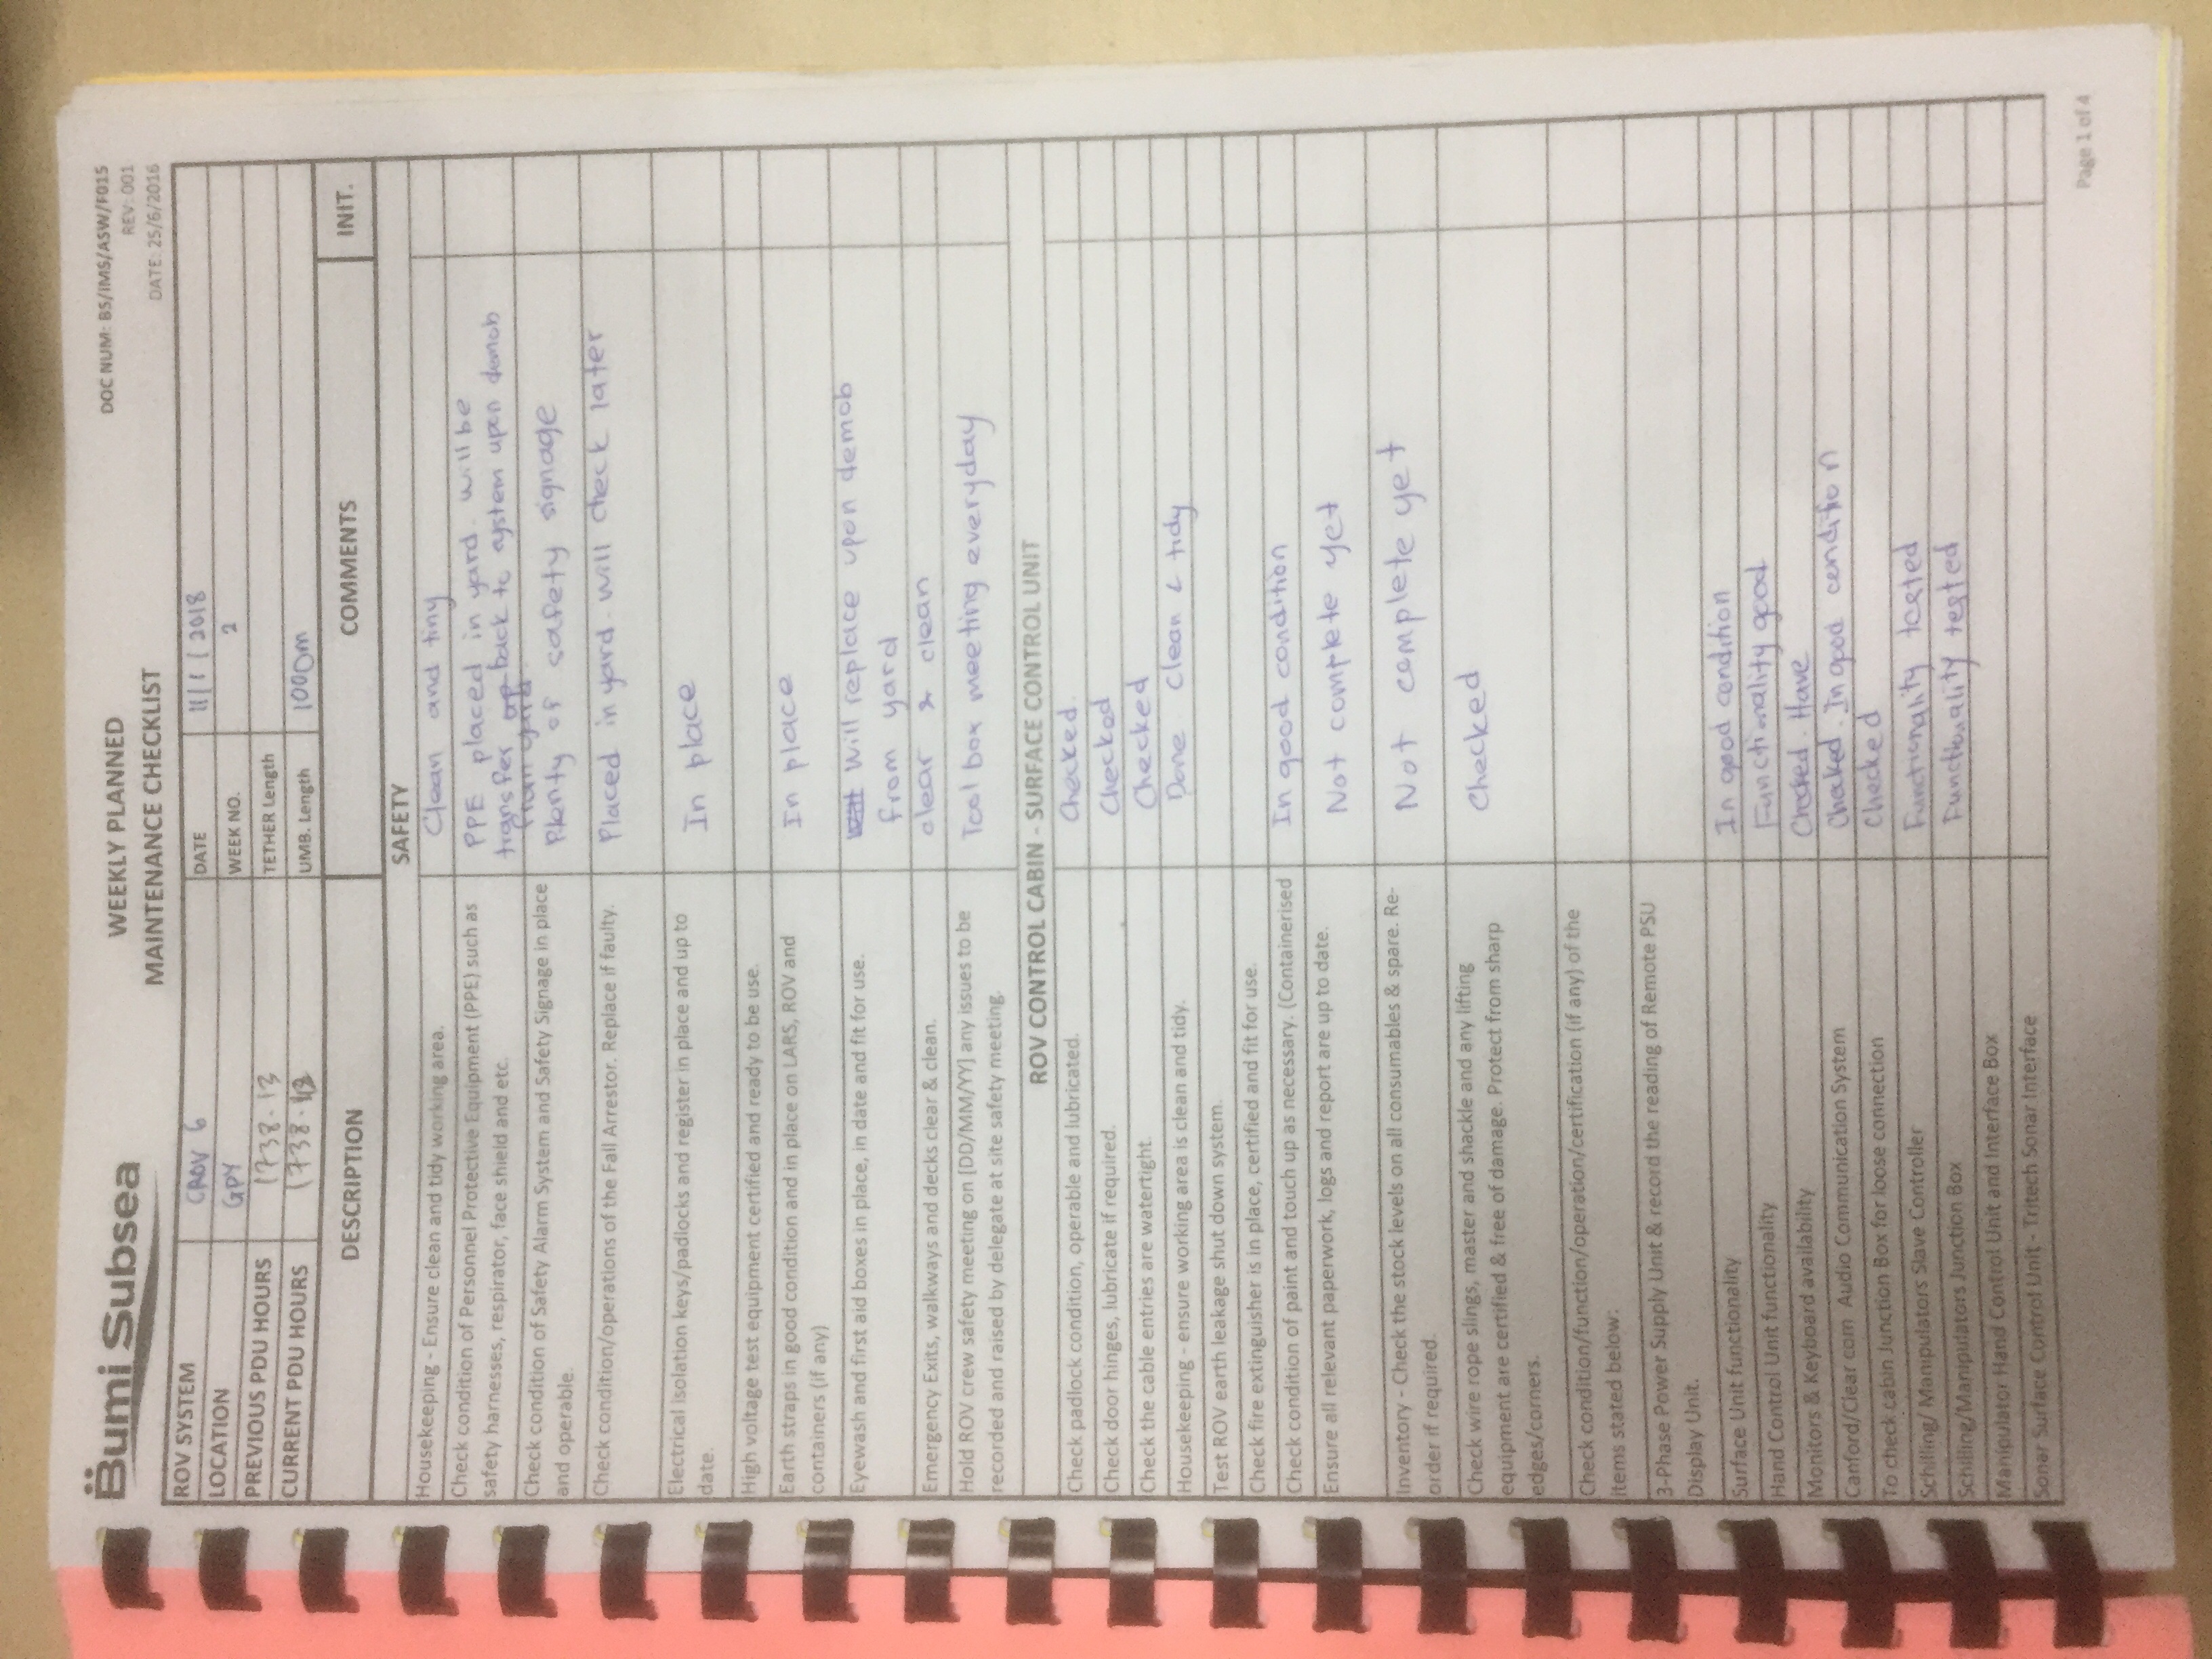 Bumi Subsea
WEEKLY PLANNED
MAINTENANCE CHECKLIST
DOC NUM: BS/IMS/ASW/F015
REV: 001
DATE: 25/6/2016
ROV SYSTEM CROV 6 DATE 11/1/2018
LOCATION GPY WEEK NO. 2
PREVIOUS PDU HOURS 1738.13 TETHER Length
CURRENT PDU HOURS 1738. UMB. Length 1000m
DESCRIPTION COMMENTS INIT.
SAFETY
Housekeeping - Ensure clean and tidy working area. Clean and tiny
Check condition of Personnel Protective Equipment (PPE) such as PPE placed in yard. will be
safety harnesses, respirator, face shield and etc. transfer back to system upon demob
from yard
Check condition of Safety Alarm System and Safety Signage in place Plenty of safety signage
and operable.
Check condition/operations of the Fall Arrestor. Replace if faulty. Placed in yard. will check later
Electrical isolation keys/padlocks and register in place and up to In place
date.
High voltage test equipment certified and ready to be use.
Earth straps in good condition and in place on LARS, ROV and In place
containers (if any)
Eyewash and first aid boxes in place, in date and fit for use. will replace upon demob
from yard
Emergency Exits, walkways and decks clear & clean. clear & clean
Hold ROV crew safety meeting on [DD/MM/YY] any issues to be Tool box meeting everyday
recorded and raised by delegate at site safety meeting.
ROV CONTROL CABIN - SURFACE CONTROL UNIT
Check padlock condition, operable and lubricated. Checked.
Check door hinges, lubricate if required. Checked
Check the cable entries are watertight. Checked
Housekeeping - ensure working area is clean and tidy. Done. Clean & tidy
Test ROV earth leakage shut down system.
Check fire extinguisher is in place, certified and fit for use.
Check condition of paint and touch up as necessary. (Containerised In good condition
Ensure all relevant paperwork, logs and report are up to date. Not complete yet
Inventory - Check the stock levels on all consumables & spare. Re- Not complete yet
order if required.
Check wire rope slings, master and shackle and any lifting Checked
equipment are certified & free of damage. Protect from sharp
edges/corners.
Check condition/function/operation/certification (if any) of the
items stated below:
3-Phase Power Supply Unit & record the reading of Remote PSU
Display Unit.
Surface Unit functionality In good condition
Hand Control Unit functionality Functionality good
Monitors & Keyboard availability Checked. Have
Canford/Clear com Audio Communication System Checked. In good condition
To check cabin Junction Box for loose connection Checked
Schilling/ Manipulators Slave Controller Functionality tested
Schilling/Manipulators Junction Box Functionality tested
Manipulator Hand Control Unit and Interface Box
Sonar Surface Control Unit - Tritech Sonar Interface
Page 1 of 4